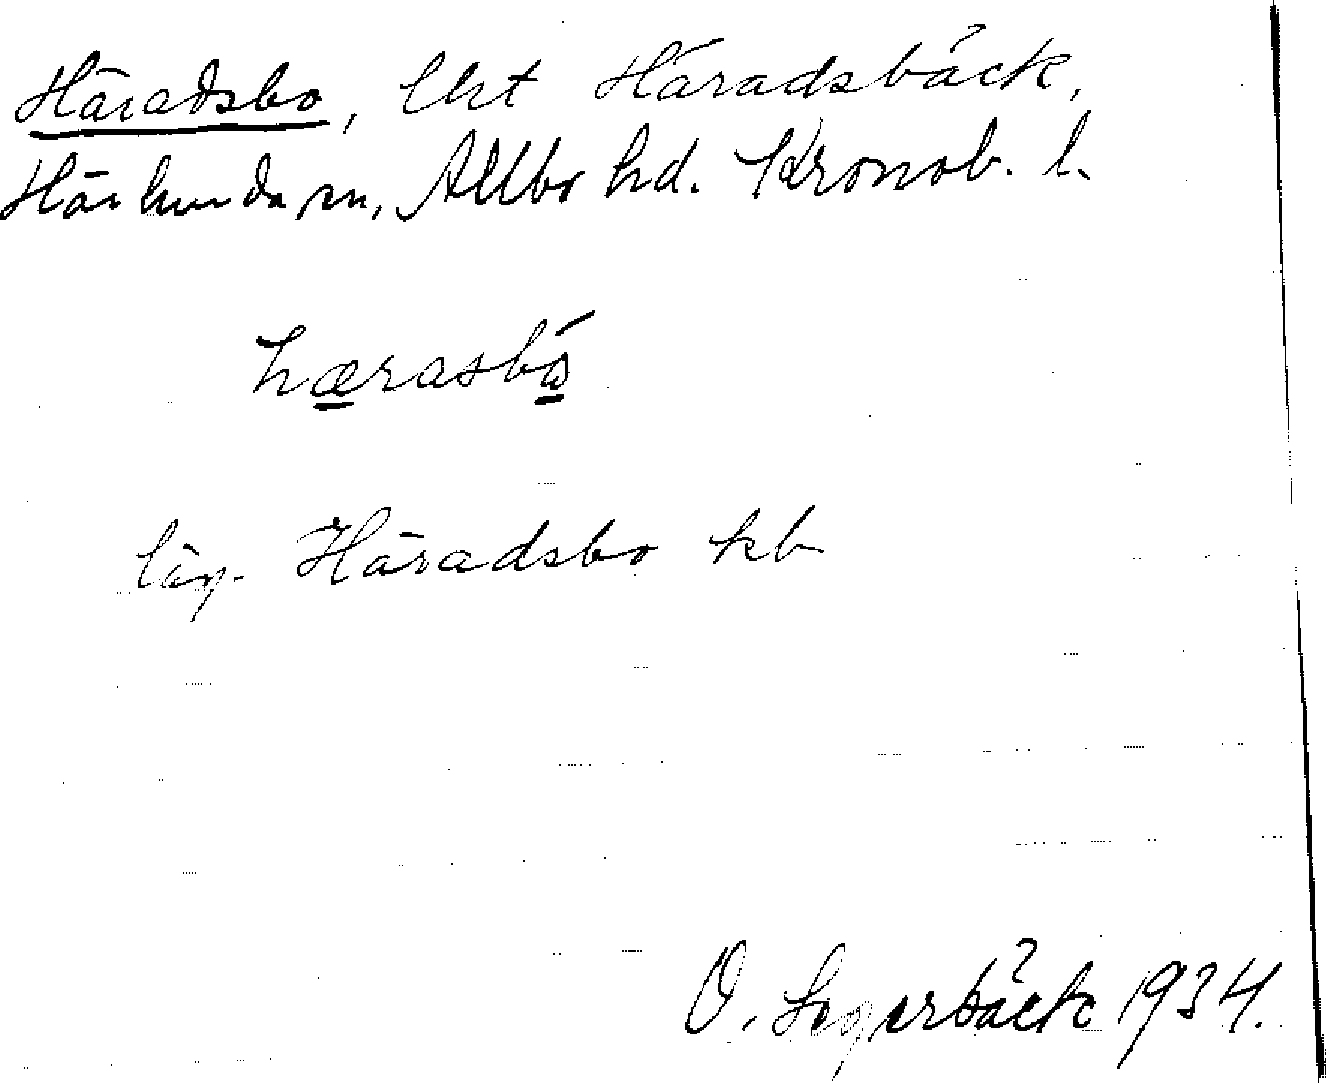 Häradsbo, lht Häradsbäck,
Härlunda sn, Allbo hd. Kronob. l.
hærasbó
läg. Häradsbo kb
O. Sagerbäck 1934.